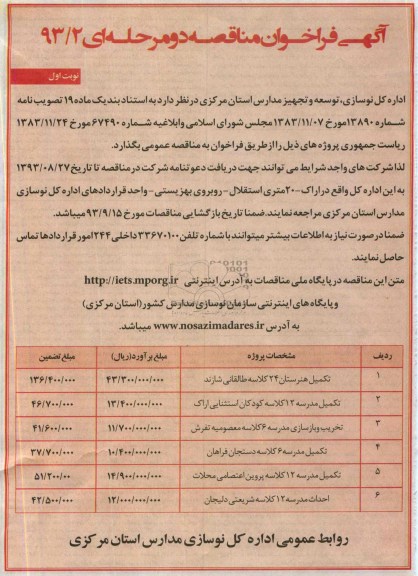 آگهی فراخوان مناقصه دومرحله‌ای ۹۳/۲
نوبت اول
اداره کل نوسازی، توسعه و تجهیز مدارس استان مرکزی در نظر دارد به استناد بند یک ماده ۱۹ تصویب نامه
شماره ۱۳۸۹۰ مورخ ۱۳۸۳/۱۱/۰۷ مجلس شورای اسلامی و ابلاغیه شماره ۶۷۴۹۰ مورخ ۱۳۸۳/۱۱/۲۴
ریاست جمهوری پروژه های ذیل را از طریق فراخوان به مناقصه عمومی بگذارد.
لذا شرکت های واجد شرایط می توانند جهت دریافت دعوتنامه شرکت در مناقصه تا تاریخ ۱۳۹۳/۰۸/۲۷
به این اداره کل واقع در اراک-۲۰متری استقلال-روبروی بهزیستی-واحد قراردادهای اداره کل نوسازی
مدارس استان مرکزی مراجعه نمایند. ضمنا تاریخ بازگشایی مناقصات مورخ ۹۳/۹/۱۵ میباشد.
ضمنا در صورت نیاز به اطلاعات بیشتر میتوانند با شماره تلفن ۳۳۶۷۰۱۰۰ داخلی ۲۴۴ امور قراردادها تماس
حاصل نمایند.
متن این مناقصه در پایگاه ملی مناقصات به آدرس اینترنتی http://iets.mporg.ir
و پایگاه های اینترنتی سازمان نوسازی مدارس کشور (استان مرکزی)
به آدرس www.nosazimadares.ir میباشد.
ردیف مشخصات پروژه مبلغ برآورد(ریال) مبلغ تضمین
۱ تکمیل هنرستان ۲۴ کلاسه طالقانی شازند ۴۳/۳۰۰/۰۰۰/۰۰۰ ۱۳۶/۴۰۰/۰۰۰
۲ تکمیل مدرسه ۱۲ کلاسه کودکان استثنایی اراک ۱۳/۴۰۰/۰۰۰/۰۰۰ ۴۶/۷۰۰/۰۰۰
۳ تخریب و بازسازی مدرسه ۶ کلاسه معصومیه تفرش ۱۱/۷۰۰/۰۰۰/۰۰۰ ۴۱/۶۰۰/۰۰۰
۴ تکمیل مدرسه ۶ کلاسه دستجان فراهان ۱۰/۴۰۰/۰۰۰/۰۰۰ ۳۷/۷۰۰/۰۰۰
۵ تکمیل مدرسه ۱۲ کلاسه پروین اعتصامی محلات ۱۴/۹۰۰/۰۰۰/۰۰۰ ۵۱/۲۰۰/۰۰
۶ احداث مدرسه ۱۲ کلاسه شریعتی دلیجان ۱۲/۰۰۰/۰۰۰/۰۰۰ ۴۲/۵۰۰/۰۰۰
روابط عمومی اداره کل نوسازی مدارس استان مرکزی